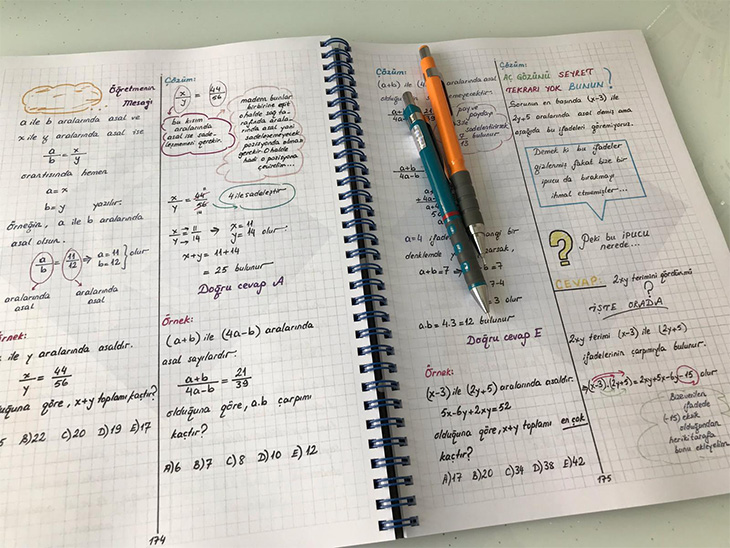 Öğretmenin
Mesajı
a ile b aralarında asal ve
x ile y aralarında asal ise
a/b = x/y
orantısında hemen
a = x
b = y yazılır.
Örneğin, a ile b aralarında
asal olsun.
a/b = 11/12 ⇒ a = 11
b = 12 } olur
aralarında
asal
aralarında
asal
Örnek:
ile y aralarında asaldır.
x/y = 44/56
olduğuna göre, x+y toplamı kaçtır?
B)22 C)20 D)19 E)17
174
Çözüm:
x/y = 44/56
bu kısım
aralarında
asal ise sade-
leşmemesi gerekir.
madem bunlar
birbirine eşit
o halde sağ ta-
rafıda arala-
rında asal yani
sadeleşemeyecek
pozisyonda olması
gerekir. O halde
hadi o pozisyona
çevirelim...
x/y = 44/56
11
14
4 ile sadeleştir
x/y → 11/14 ⇒ x = 11
y = 14 olur
x+y = 11+14
= 25 bulunur
Doğru cevap A
Örnek:
(a+b) ile (4a-b) aralarında
asal sayılardır.
a+b/4a-b = 21/39
olduğuna göre, a.b çarpımı
kaçtır?
A)6 B)7 C)8 D)10 E)12
Çözüm:
(a+b) ile (4a
aralarında asal
olduğu
pay ve
paydayı
sadeleştirirsek
bulunur.
a+b/4a-b
a+b
+ 4a
5a
a
a = 4 ifade
hangi bir
denklemde
yazarsak,
a+b = 7 ⇒
b = 7
7-4
= 3 olur
a.b = 4.3 = 12 bulunur
Doğru cevap E
Örnek:
(x-3) ile (2y+5) aralarında asaldır.
5x-6y+2xy = 52
olduğuna göre, x+y toplamı en çok
kaçtır?
A)17 B)20 C)34 D)38 E)42
Çözüm:
AÇ GÖZÜNÜ SEYRET
TEKRARI YOK BUNUN!
Sorunun en başında (x-3) ile
2y+5 aralarında asal demiş ama
aşağıda bu ifadeleri göremiyoruz.
Demek ki bu ifadeler
gizlenmiş fakat bize bir
ipucu da bırakmayı
ihmal etmemişler...
? Peki bu ipucu
nerede...
CEVAP: 2xy terimini gördünmü
?
İŞTE ORADA
2xy terimi (x-3) ile (2y+5)
ifadelerinin çarpımıyla bulunur.
⇒ (x-3).(2y+5) = 2xy+5x-6y-15 olur
Bize verilen
ifadede
(-15) eksik
olduğundan
her iki tarafa
bunu ekleyelim
175